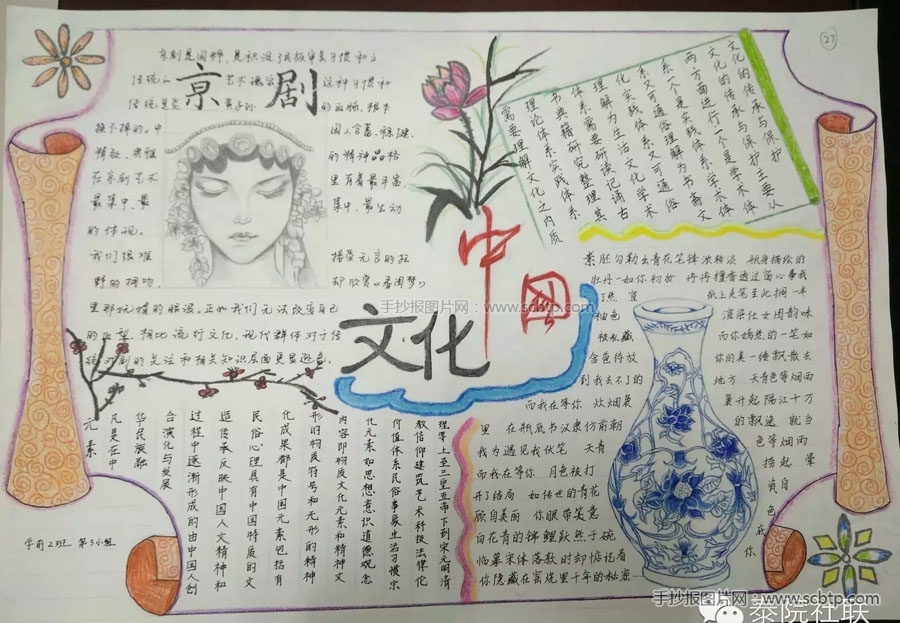 27
京剧
京剧是国粹,是积淀了
传统的
艺术瑰宝
这种习惯和
的血脉,根本
换不掉的。中
国人含蓄、稳健、
精致、典雅
的精神品格
在京剧艺术
里有着最丰富、
最集中、最
集中、最生动
的体现。
我们很难
却欣赏《春闺梦》
里那
正如我们无法改变自己
相比流行文化,现代群体对于传
统京剧的关注和相关知识层面更显逊色。
中国
文化
文化的传承与保护主要从
两方面进行一个是学术体
系一个是实践体系学术体
系又可通俗理解为书斋文
化实践体系又可通俗
理解为生活文化学术
体系需要研读记诵古
书典籍研究整理其
理论体系实践体系
需要理解文化之内质
素胚勾勒出青花笔锋浓转淡 瓶身描绘的
牡丹一如你初妆 冉冉檀香透过窗心事我
了然 宣
纸上走笔至此搁一半
釉色
渲染仕女图韵味
被私藏
而你嫣然的一笑如
含苞待放
你的美一缕飘散去
到我去不了的
地方 天青色等烟雨
而我在等你 炊烟袅
袅升起隔江千万
里 在瓶底书汉隶仿前朝
的飘逸 就当
我为遇见你伏笔 天青
色等烟雨
而我在等你 月色被打
捞起 晕
开了结局 如传世的青花
瓷自
顾自美丽 你眼带笑意
色
白花青的锦鲤跃然于碗
底
临摹宋体落款时却惦记着
你
你隐藏在窑烧里千年的秘密……
元素
凡是在中
华民族融
合演化与发展
过程中逐渐形成的由中国人创
造传承反映中国人文精神和
民俗心理具有中国特质的文
化成果都是中国元素包括有
形的物质符号和无形的精神
内容即物质文化元素和精神文
化元素如思想意识道德观念
价值体系民俗事象生活习惯宗
教信仰建筑艺术科技法律伦
理等上至三皇五帝下到宋元明清
学前2班 第3小组
手抄报图片网:www.scbtp.com
手抄报图片网:www.scbtp.com
泰院社联